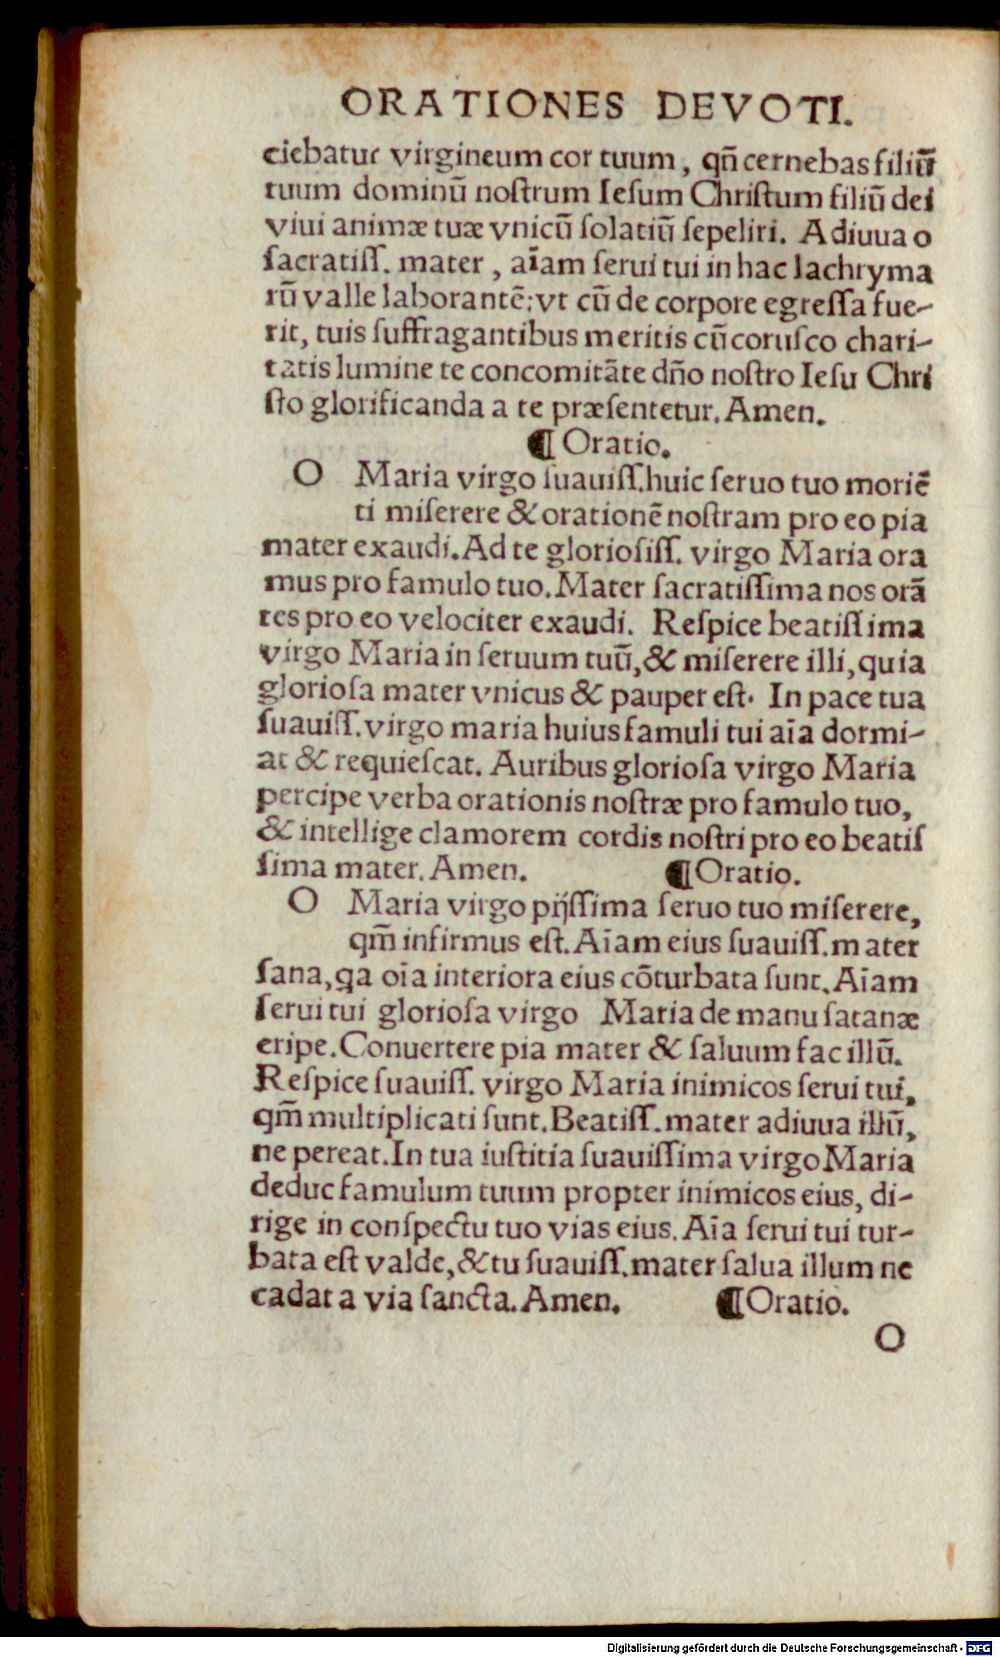 ORATIONES DEVOTI.
ciebatur virgineum cor tuum, qñ cernebas filiū
tuum dominū noſtrum Ieſum Chriſtum filiū dei
viui animæ tuæ vnicū ſolatiū ſepeliri. Adiuua o
ſacratiſſ. mater, aīam ſerui tui in hac lachryma
rū valle laborantē: vt cū de corpore egreſſa fue-
rit, tuis ſuffragantibus meritis cū coruſco chari-
tatis lumine te concomitāte dño noſtro Ieſu Chri
ſto glorificanda a te præſentetur. Amen.
¶ Oratio.
O Maria virgo ſuauiſſ. huic ſeruo tuo moriē
ti miſerere & orationē noſtram pro eo pia
mater exaudi. Ad te glorioſiſſ. virgo Maria ora
mus pro famulo tuo. Mater ſacratiſſima nos orā
tes pro eo velociter exaudi. Reſpice beatiſſima
virgo Maria in ſeruum tuū, & miſerere illi, quia
glorioſa mater vnicus & pauper eſt. In pace tua
ſuauiſſ. virgo maria huius famuli tui aīa dormi-
at & requieſcat. Auribus glorioſa virgo Maria
percipe verba orationis noſtræ pro famulo tuo,
& intellige clamorem cordis noſtri pro eo beatiſ
ſima mater. Amen. ¶ Oratio.
O Maria virgo pijſſima ſeruo tuo miſerere,
qm̄ infirmus eſt. Aīam eius ſuauiſſ. mater
ſana, qa oīa interiora eius cōturbata ſunt. Aīam
ſerui tui glorioſa virgo Maria de manu ſatanæ
eripe. Conuertere pia mater & ſaluum fac illū.
Reſpice ſuauiſſ. virgo Maria inimicos ſerui tui,
qm̄ multiplicati ſunt. Beatiſſ. mater adiuua illū,
ne pereat. In tua iuſtitia ſuauiſſima virgo Maria
deduc famulum tuum propter inimicos eius, di-
rige in conſpectu tuo vias eius. Aīa ſerui tui tur-
bata eſt valde, & tu ſuauiſſ. mater ſalua illum ne
cadat a via ſancta. Amen. ¶ Oratio.
O
Digitalisierung gefördert durch die Deutsche Forschungsgemeinschaft - DFG